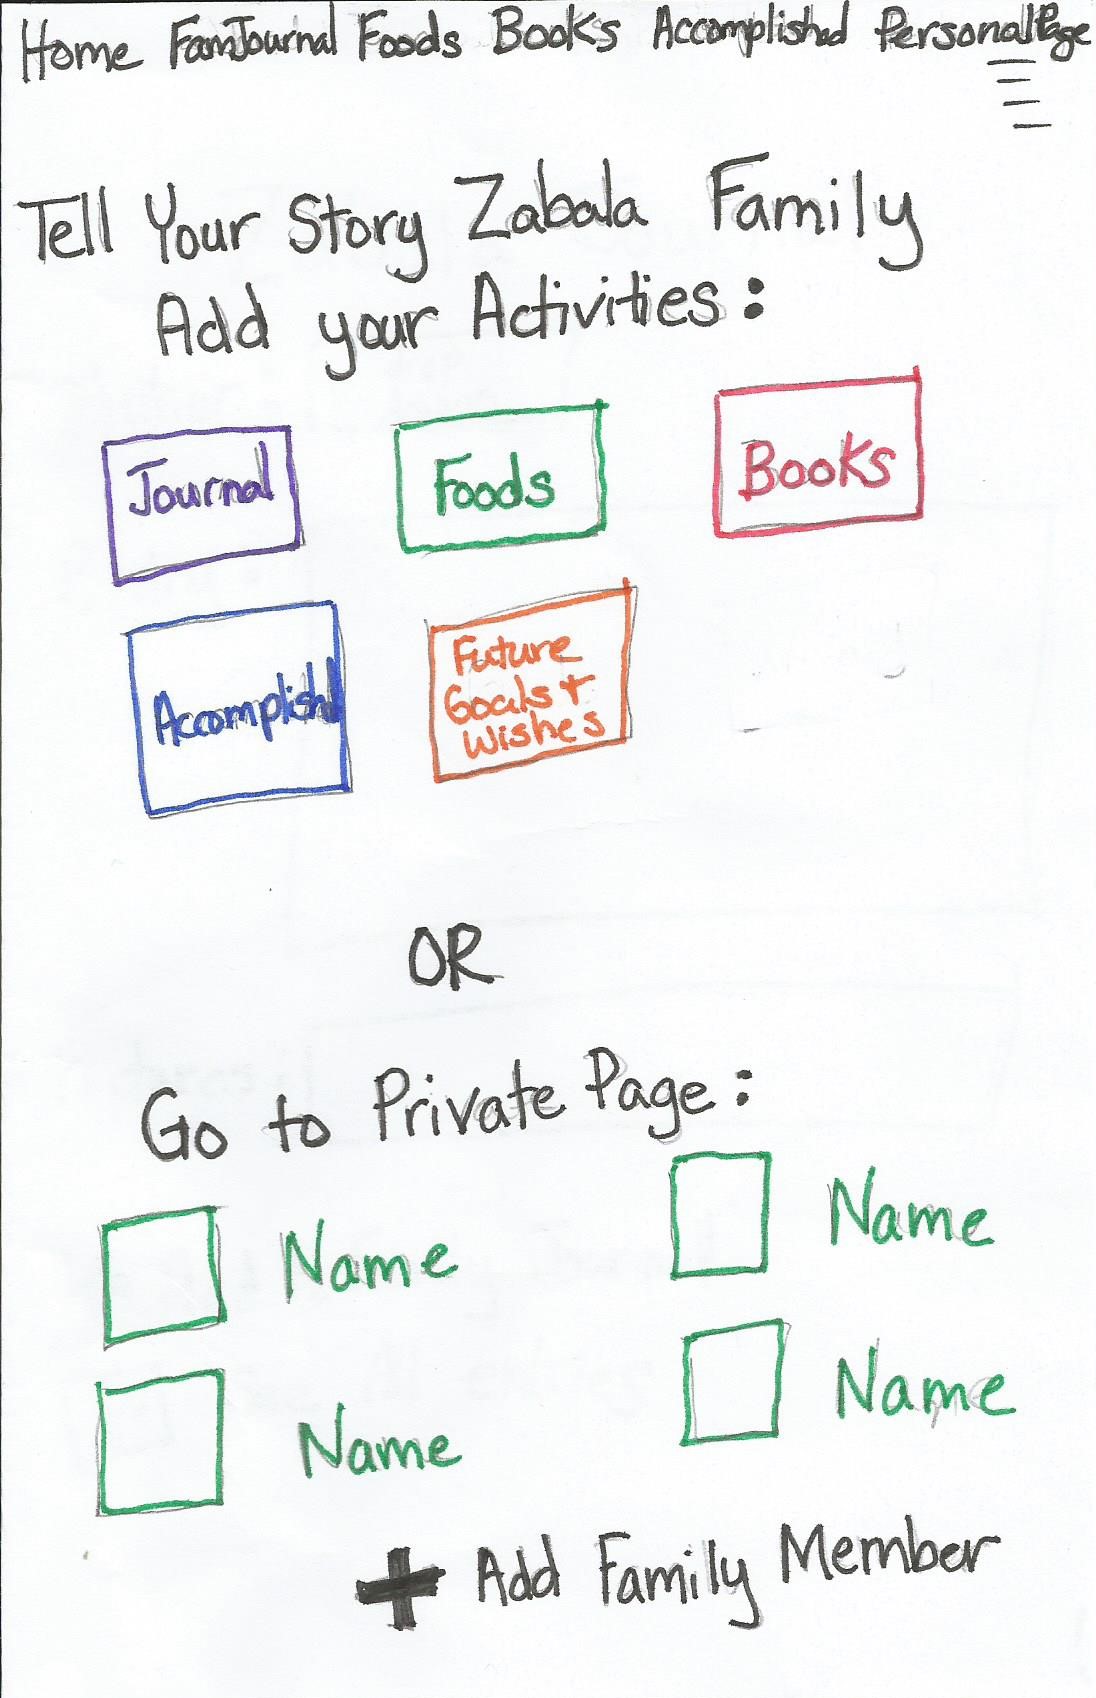 Home FamJournal Foods Books Accomplished PersonalPage
Tell Your Story Zabala Family
Add your Activities:
Journal Foods Books
Accomplished
Future
Goals +
Wishes
OR
Go to Private Page:
Name Name
Name Name
+ Add Family Member